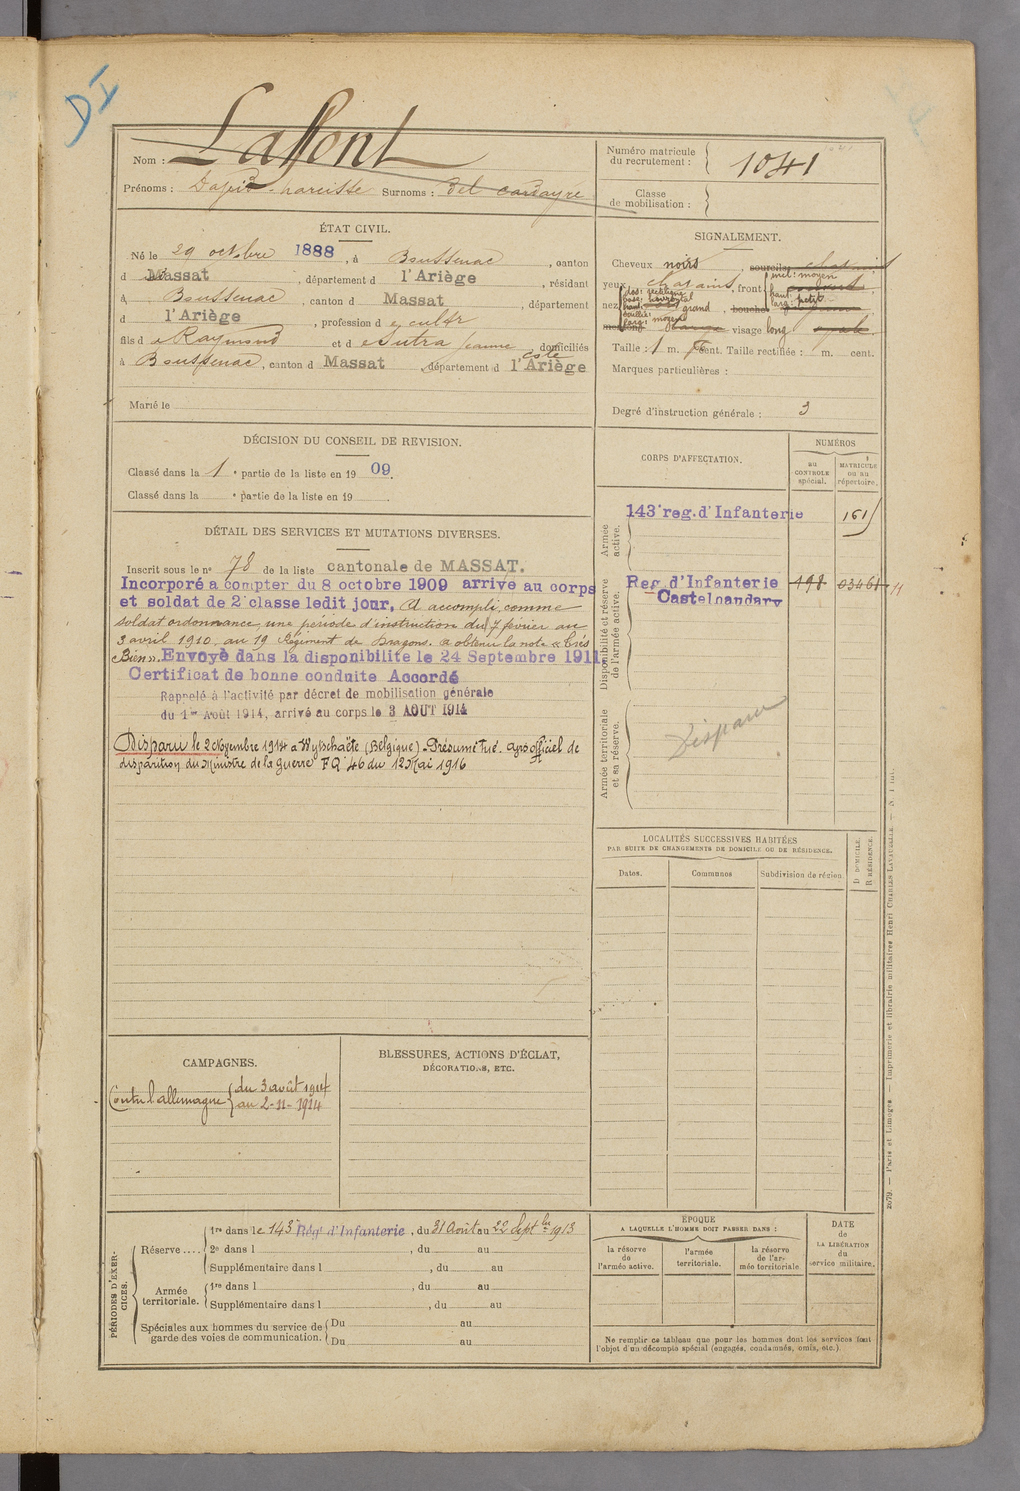 DI
Nom : Laffont
Prénoms : narcisse Surnoms : del
Numéro matricule du recrutement : 1041
Classe de mobilisation :
ÉTAT CIVIL.
Né le 29 octobre 1888, à Boussenac, canton
d Massat, département d l'Ariège, résidant
à Boussenac, canton d Massat, département
d l'Ariège, profession de cultr
fils de Raymond et de Sutra Jeanne, domiciliés
à Boussenac, canton d Massat, département d l'Ariège
Marié le
SIGNALEMENT.
Cheveux noirs, sourcils
incl: moyen
yeux chatains, front
haut:
larg: petit
nez
dos: rectiligne
base:
grand, bouche
larg: moyen
visage long
Taille : 1 m. cent. Taille rectifiée : m. cent.
Marques particulières :
Degré d'instruction générale : 3
DÉCISION DU CONSEIL DE REVISION.
Classé dans la 1e partie de la liste en 1909.
Classé dans la e partie de la liste en 19
DÉTAIL DES SERVICES ET MUTATIONS DIVERSES.
Inscrit sous le n° 78 de la liste cantonale de MASSAT.
Incorporé a compter du 8 octobre 1909 arrivé au corps
et soldat de 2e classe ledit jour, A accompli, comme
soldat ordonnance, une période d'instruction du 7 février au
3 avril 1910, au 19 Régiment de Dragons. a obtenu la note « très
Bien ». Envoyé dans la disponibilité le 24 Septembre 1911
Certificat de bonne conduite Accordé
Rappelé à l'activité par décret de mobilisation générale
du 1er Août 1914, arrivé au corps le 3 AOUT 1914
Disparu le 2 Novembre 1914 a Wytschaëte (Belgique). Présumé tué. Avis officiel de
disparition du Ministre de la Guerre FQ 46 du 12 Mai 1916
CORPS D'AFFECTATION.
NUMÉROS
au CONTROLE spécial.
MATRICULE ou au répertoire.
Armée active.
143e reg. d'Infanterie
Disponibilité et réserve de l'armée active.
Reg. d'Infanterie 198 03461 11
Castelnandary
Armée territoriale et sa réserve.
Disparu
LOCALITÉS SUCCESSIVES HABITÉES
PAR SUITE DE CHANGEMENTS DE DOMICILE OU DE RÉSIDENCE.
Dates.
Communes
Subdivision de région
D DOMICILE.
R RÉSIDENCE.
CAMPAGNES.
Contre l'allemagne du 3 août 1914
au 2-11-1914
BLESSURES, ACTIONS D'ÉCLAT,
DÉCORATIONS, ETC.
PÉRIODES D'EXERCICES.
Réserve....
1re dans le 143e Régt d'Infanterie, du 31 Août au 22 Septbre 1913
2e dans l , du au
Supplémentaire dans l , du au
Armée territoriale.
1re dans l , du au
Supplémentaire dans l , du au
Spéciales aux hommes du service de garde des voies de communication.
Du au
Du au
ÉPOQUE
A LAQUELLE L'HOMME DOIT PASSER DANS :
la réserve de l'armée active.
l'armée territoriale.
la réserve de l'armée territoriale
DATE
de
LA LIBÉRATION
du
service militaire.
Ne remplir ce tableau que pour les hommes dont les services font
l'objet d'un décompte spécial (engagés, condamnés, omis, etc.)
Paris et Limoges. — Imprimerie et librairie militaires Henri CHARLES-LAVAUZELLE.